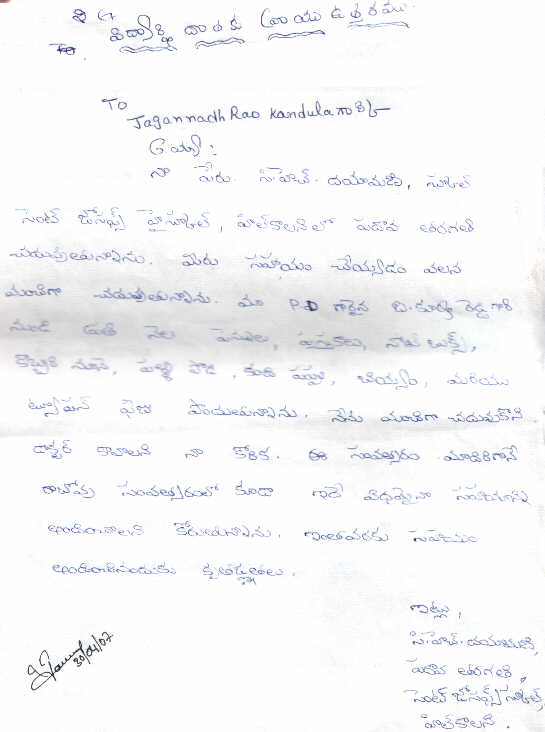 విద్యార్థి దాతకు వ్రాయు ఉత్తరము
To
Jagannadh Rao Kandula గారికి/-
అయ్యా:
నా పేరు సి.హెచ్. దయామణి, స్కూల్
సెంట్ జోసఫ్స్ హైస్కూల్, హిల్‌కాలనీలో పదవ తరగతి
చదువుతున్నాను. మీరు సహాయం చేయ్యడం వలన
మంచిగా చదువుతున్నాను. మా P.D గారైన బి. సూర్య రెడ్డి గారి
నుండి ప్రతి నెల పెన్నులు, పుస్తకాలు, నోట్ బుక్స్,
కొబ్బరి నూనె, పళ్ళ పొడి, కంది పప్పు, బియ్యం, మరియు
ట్యూషన్ ఫీజు పొందుతున్నాను. నేను మంచిగా చదువుకొని
డాక్టర్ కావాలని నా కోరిక. ఈ సంవత్సరం మాదిరిగానే
రాబోవు సంవత్సరంలో కూడా ఇదే విధమైన సహాయాన్ని
అందించాలని కోరుతున్నాను. ఇంతవరకు సహాయం
అందించినందుకు కృతజ్ఞతలు.
ఇట్లు,
సి.హెచ్. దయామణి,
పదవ తరగతి,
సెంట్ జోసఫ్స్ స్కూల్,
హిల్‌కాలనీ.
30/04/07